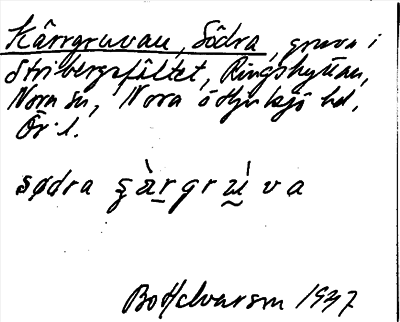 Kärrgruvan, Södra, gruva i
Stribergsfältet, Ringshyttan,
Nora sn, Nora o Hjulsjö hd,
Ör. l.
sødra s̨àrgrùva
Bo Halvarson 1937